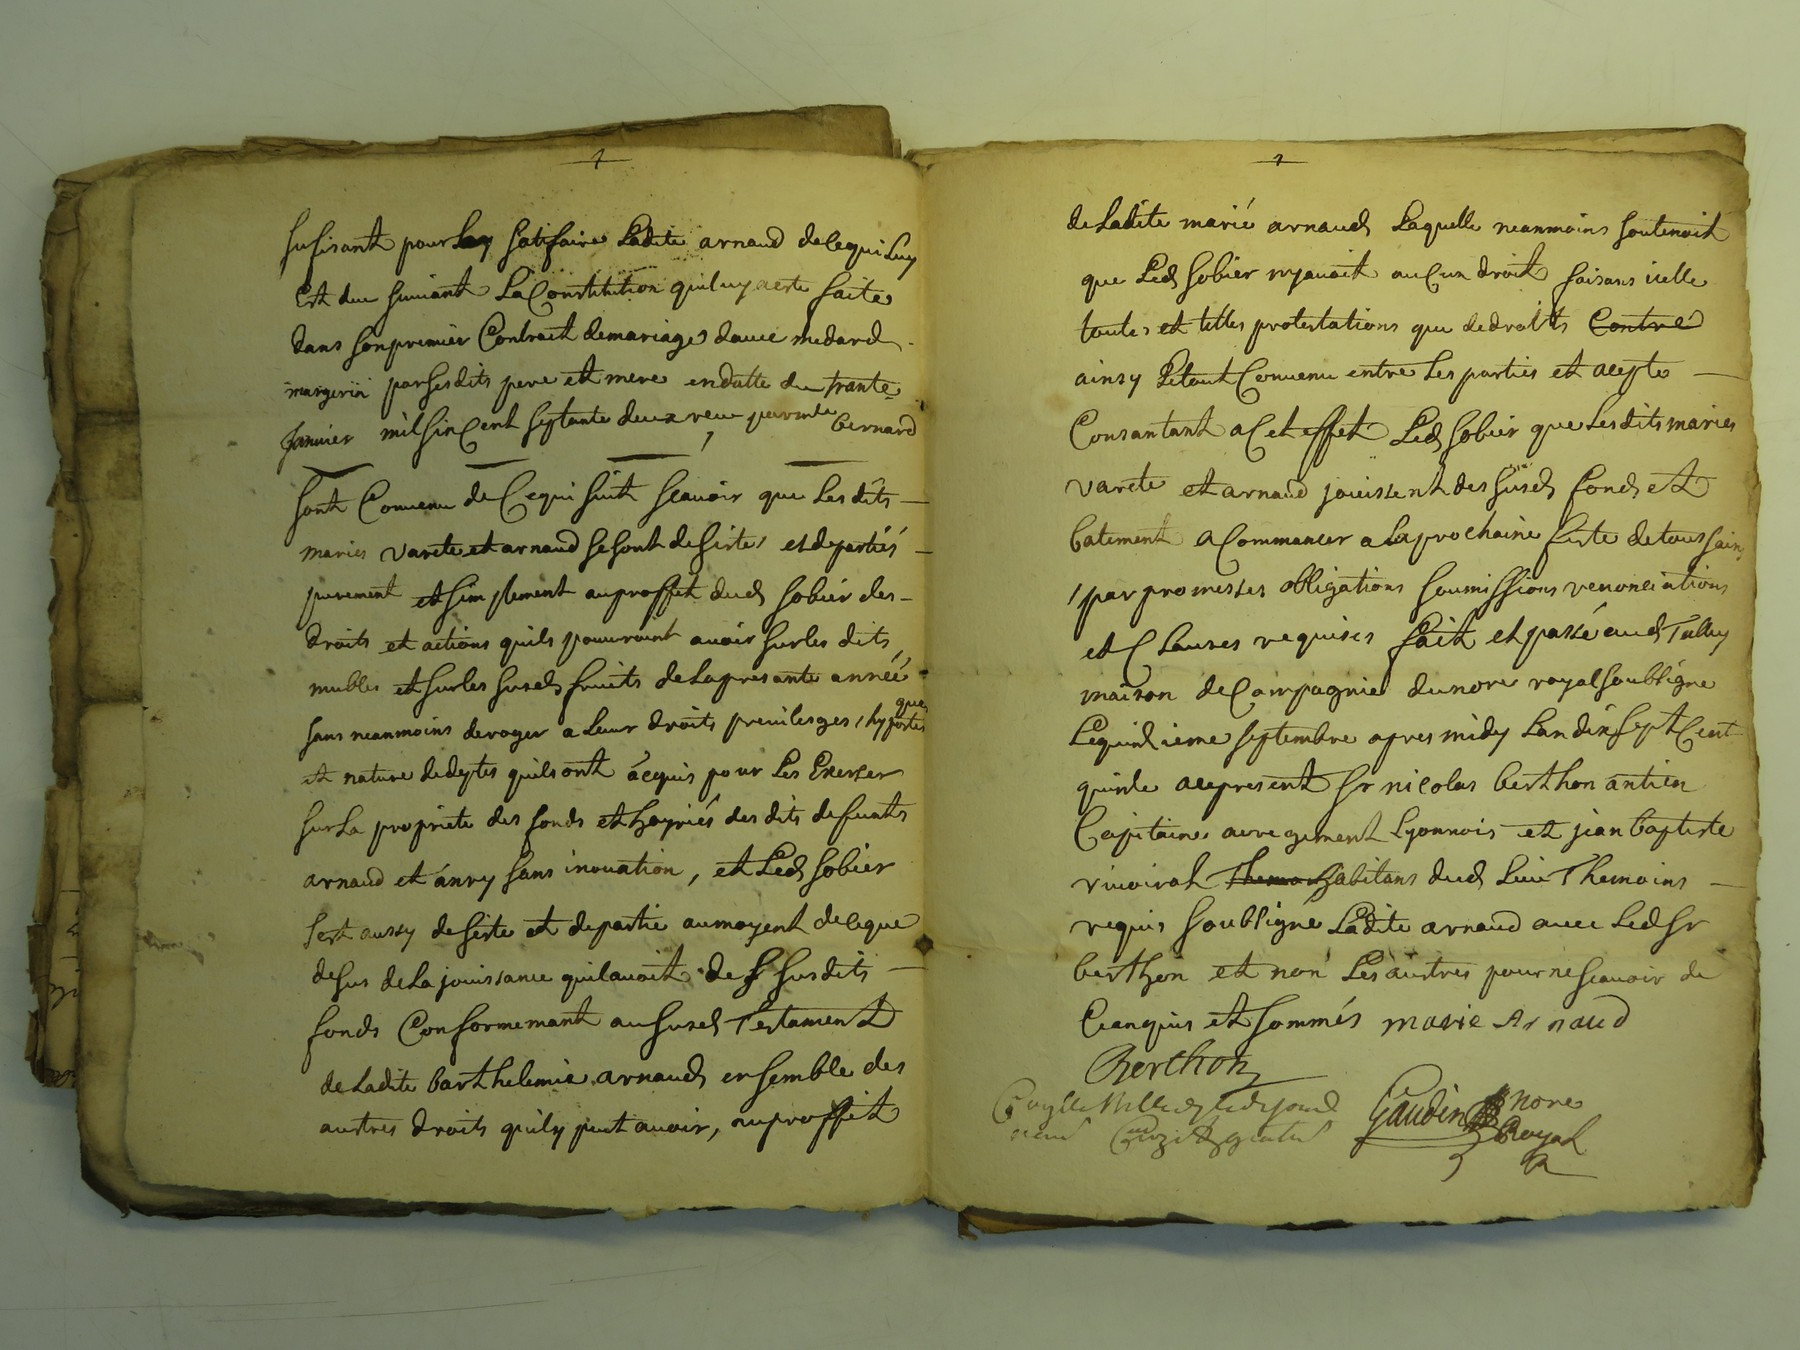 sufisant pour satisfaire Ladite arnaud de ce qui Luy
Est deu suivant La Constitution quil uy a este faite
dans son premier Contract de mariage d'avec medard
margerin par ses dits pere et mere en datte du trante
Janvier mil sin Cent septante deux receu par mtre bernard
sont Convenu de Ce qui suit scavoir que Les dits
maries varete et arnaud se sont desistes et departiés
purement et simplement au proffit dud sobier des
droits et actions quils pouvroint avoir sur les dits
mubles et sur les susd fruits de La presante année
sans neanmoins deroger a Leur droits previlesges, hyportes
ques
et nature dedeptes quils ont acquis pour Les Exerser
sur La propriete des fonds et hoyriés des dits defunts
arnaud et anry sans inovation, et Led sobier
sest aussy desiste et departie au moyent de ce que
desus de La jouissance quil avoit de s susdits
fonds Conformemant au susd Testament
de Ladite barthelemie arnaud ensemble des
austres droits quil y peut avoir, au proffit
de Ladite marié arnaud Laquelle neanmoins soutenoit
que Led sobier ny avoit auCun droit faisans icelle
toutes et telles protestations que de droits Contre
ainsy Le tout Convenu entre Les parties et acepte
Consantant a Cet effet Led sobier que Les dits maries
varete et arnaud jouissent des susd fonds et
batiment a Commancer a La prochaine feste de tous sain
par promesses obligations soumissions renonciations
et Clauses requises fait et passé aud Tulluy
maison de Campagnie du nore royal soubsigne
Le quinzieme septembre apres midy Lan dix sept Cent
quinze a ce present Sr nicolas berthon antien
Capitaine au regement Lyonnois et jean baptiste
rivoirat habitans dud Lieu Themoins
requis soubsigné Ladite arnaud avec Led Sr
berthon et non Les austres pour ne scavoir de
Ce anquis et sommés marie Arnaud
Berthon
Gaudin nore
Royal